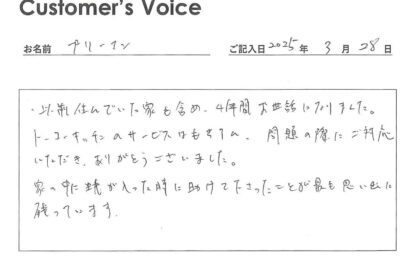 Customer's Voice
お名前 フリーマン
ご記入日 2025 年 3 月 28 日
・以前住んでいた家も含め、4年間お世話になりました。
トーコーキッチンのサービスはもちろん、問題の際にご対応
いただき、ありがとうございました。
家の中に蜂が入った時に助けて下さったことが最も思い出に
残っています。